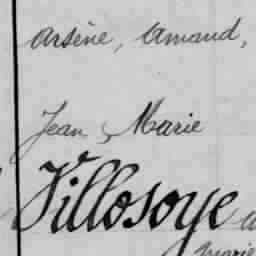 Arsène, Amand,
Jean, Marie
Villosoye
marie